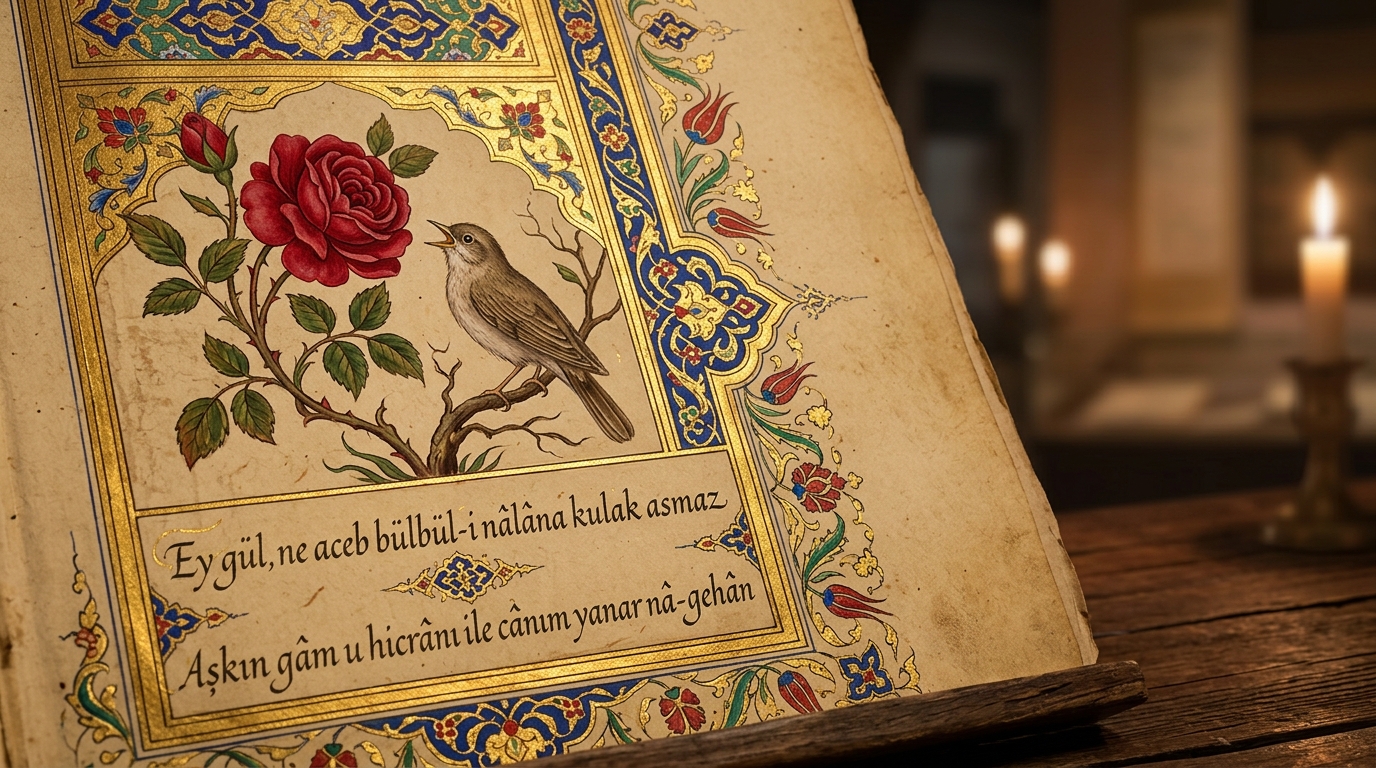 Ey gül, ne aceb bülbül-i nâlâna kulak asmaz
Aşkın gâm u hicrânı ile cânım yanar nâ-gehân